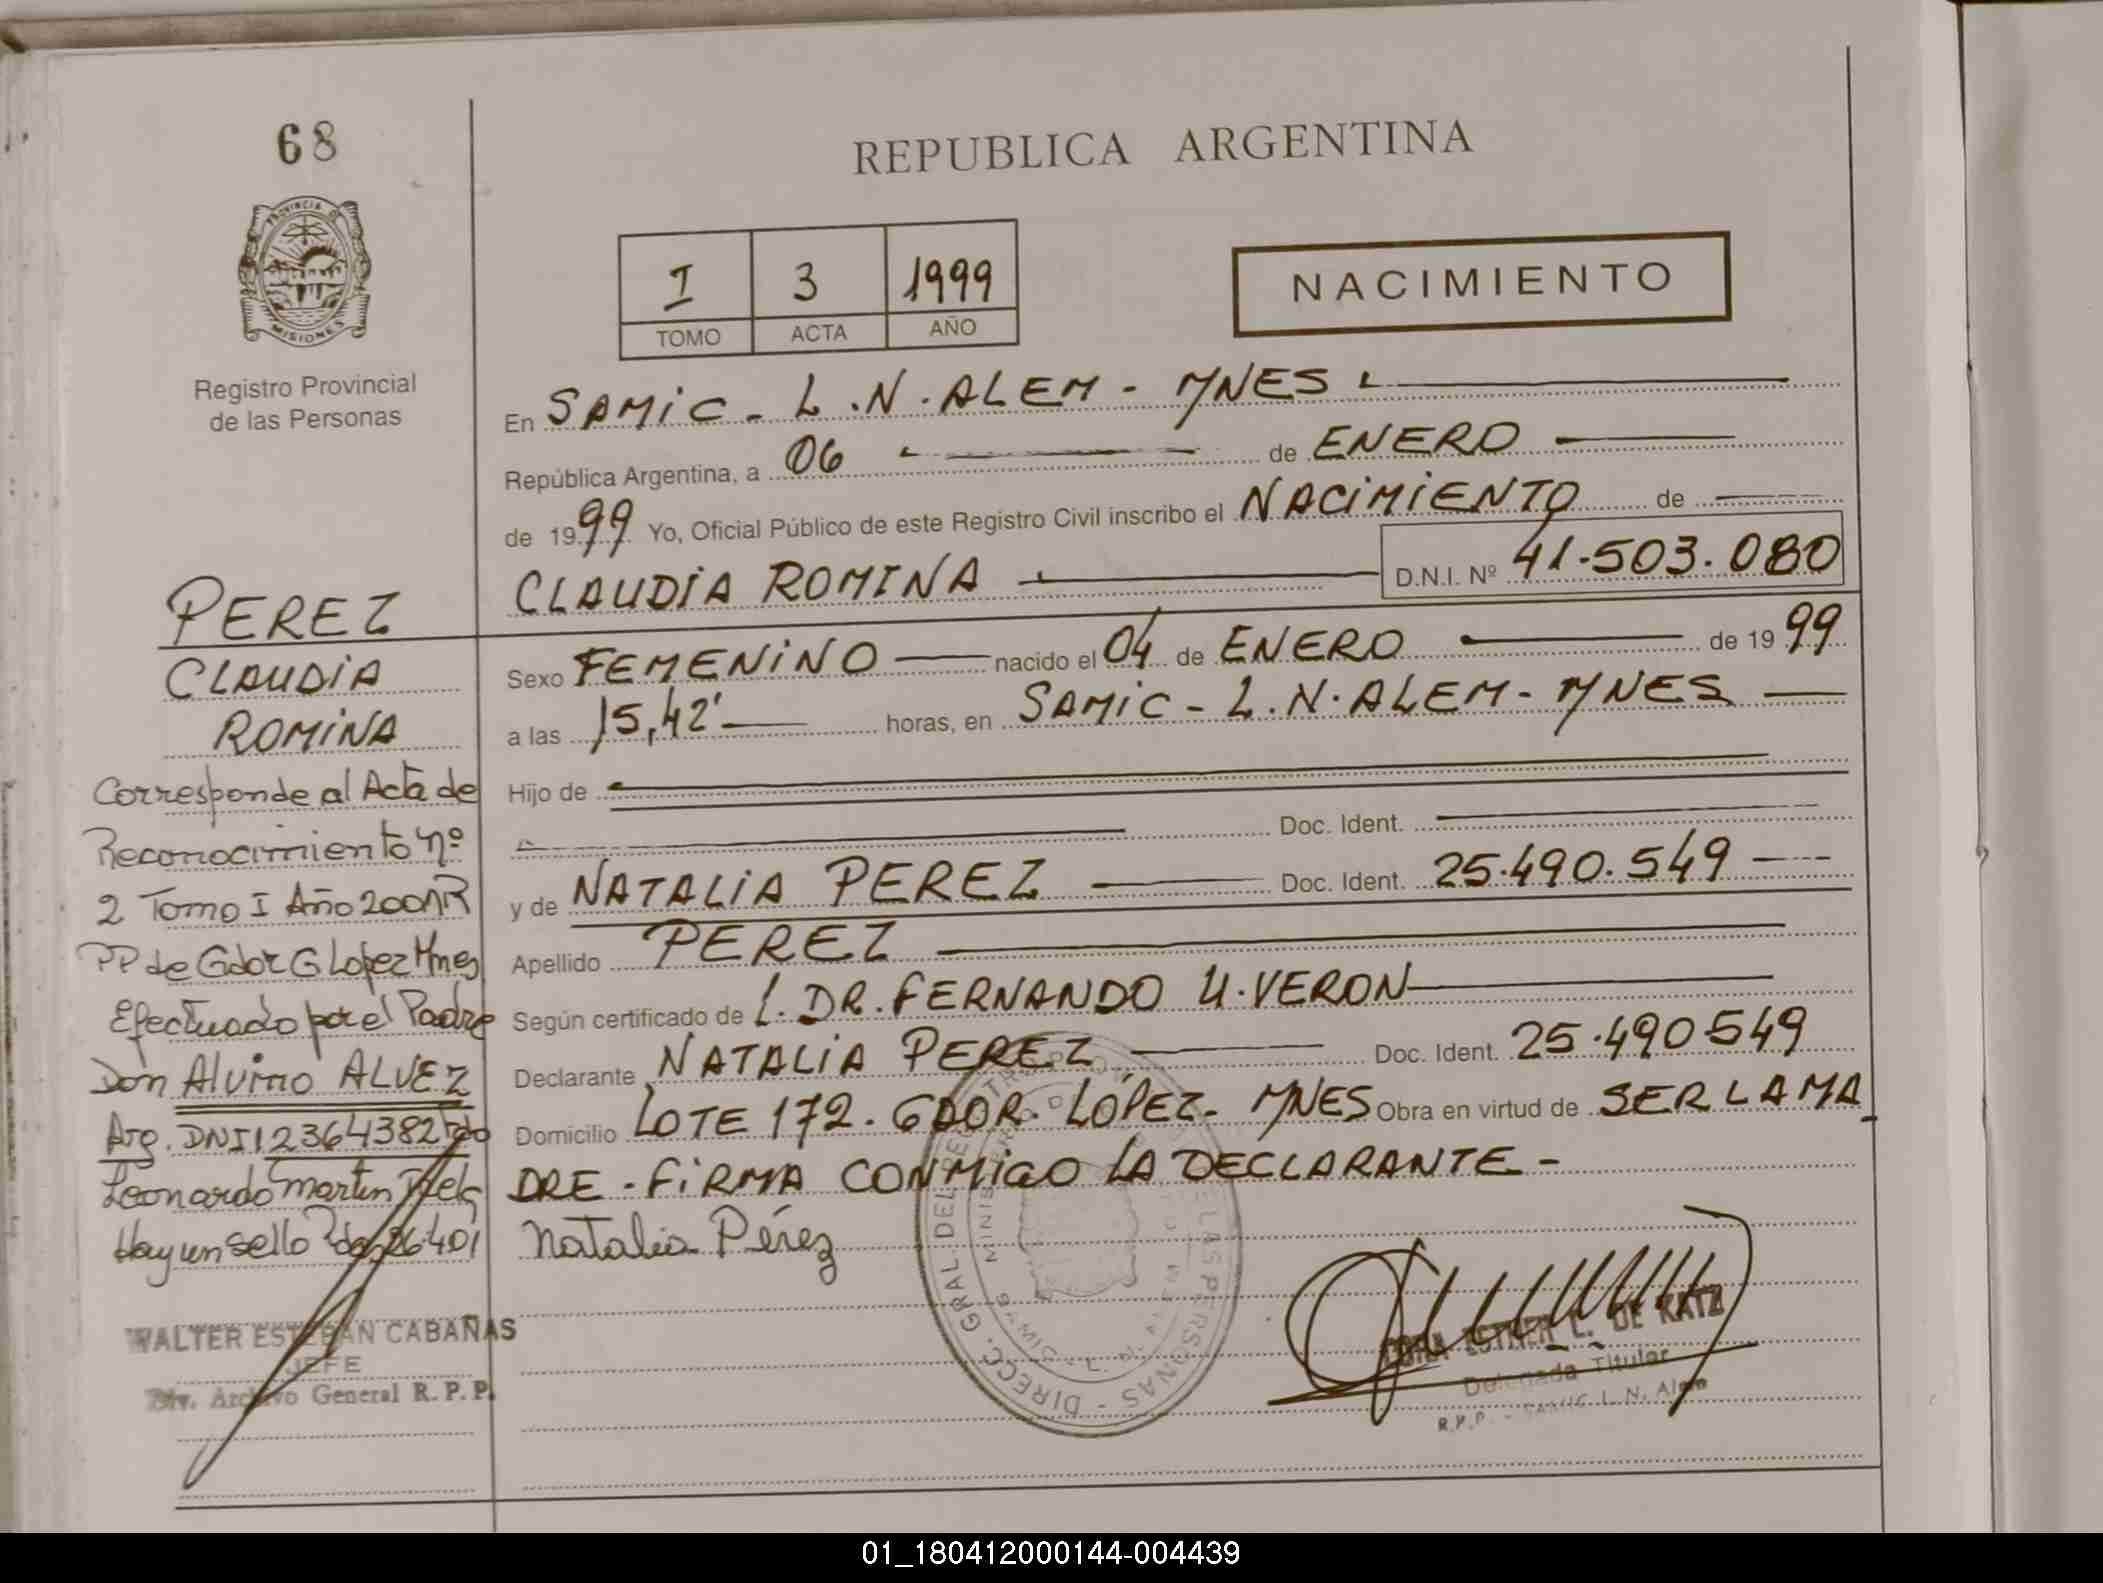 68
PROVINCIA DE
MISIONES
Registro Provincial
de las Personas
REPUBLICA ARGENTINA
I 3 1999
TOMO ACTA AÑO
NACIMIENTO
En SAMiC - L.N.ALEM - MNES
República Argentina, a 06 de ENERO
de 1999 Yo, Oficial Público de este Registro Civil inscribo el NACiMiENTO de
CLAUDiA ROMINA D.N.I. Nº 41.503.080
Sexo FEMENiNO nacido el 04 de ENERO de 1999
a las 15,42' horas, en SAMiC - L.N.ALEM - MNES
Hijo de
Doc. Ident.
y de NATALiA PEREZ Doc. Ident. 25.490.549
Apellido PEREZ
Según certificado de L. DR. FERNANDO U. VERON
Declarante NATALiA PEREZ Doc. Ident. 25.490549
Domicilio LOTE 172. GDOR. LÓPEZ - MNES Obra en virtud de SER LA MA
DRE - FiRMA CONMiGO LA DECLARANTE -
Natalia Pérez
PEREZ
CLAUDiA
ROMiNA
Corresponde al Acta de
Reconocimiento Nº
2 Tomo I Año 2001 R
PP de Gdor G Lopez Mnes
Efectuado por el Padre
Don Alvino ALVEZ
Arg. DNI 12364382 Fdo
Leonardo Martin
Hay un sello
WALTER ESTEBAN CABAÑAS
JEFE
Div. Archivo General R.P.P.
ESTHER L. DE KATZ
Delegada Titular
R.P.P. - SAMIC L.N. Alem
DIRECC. GRAL. DEL REGISTRO DE LAS PERSONAS
01_180412000144-004439